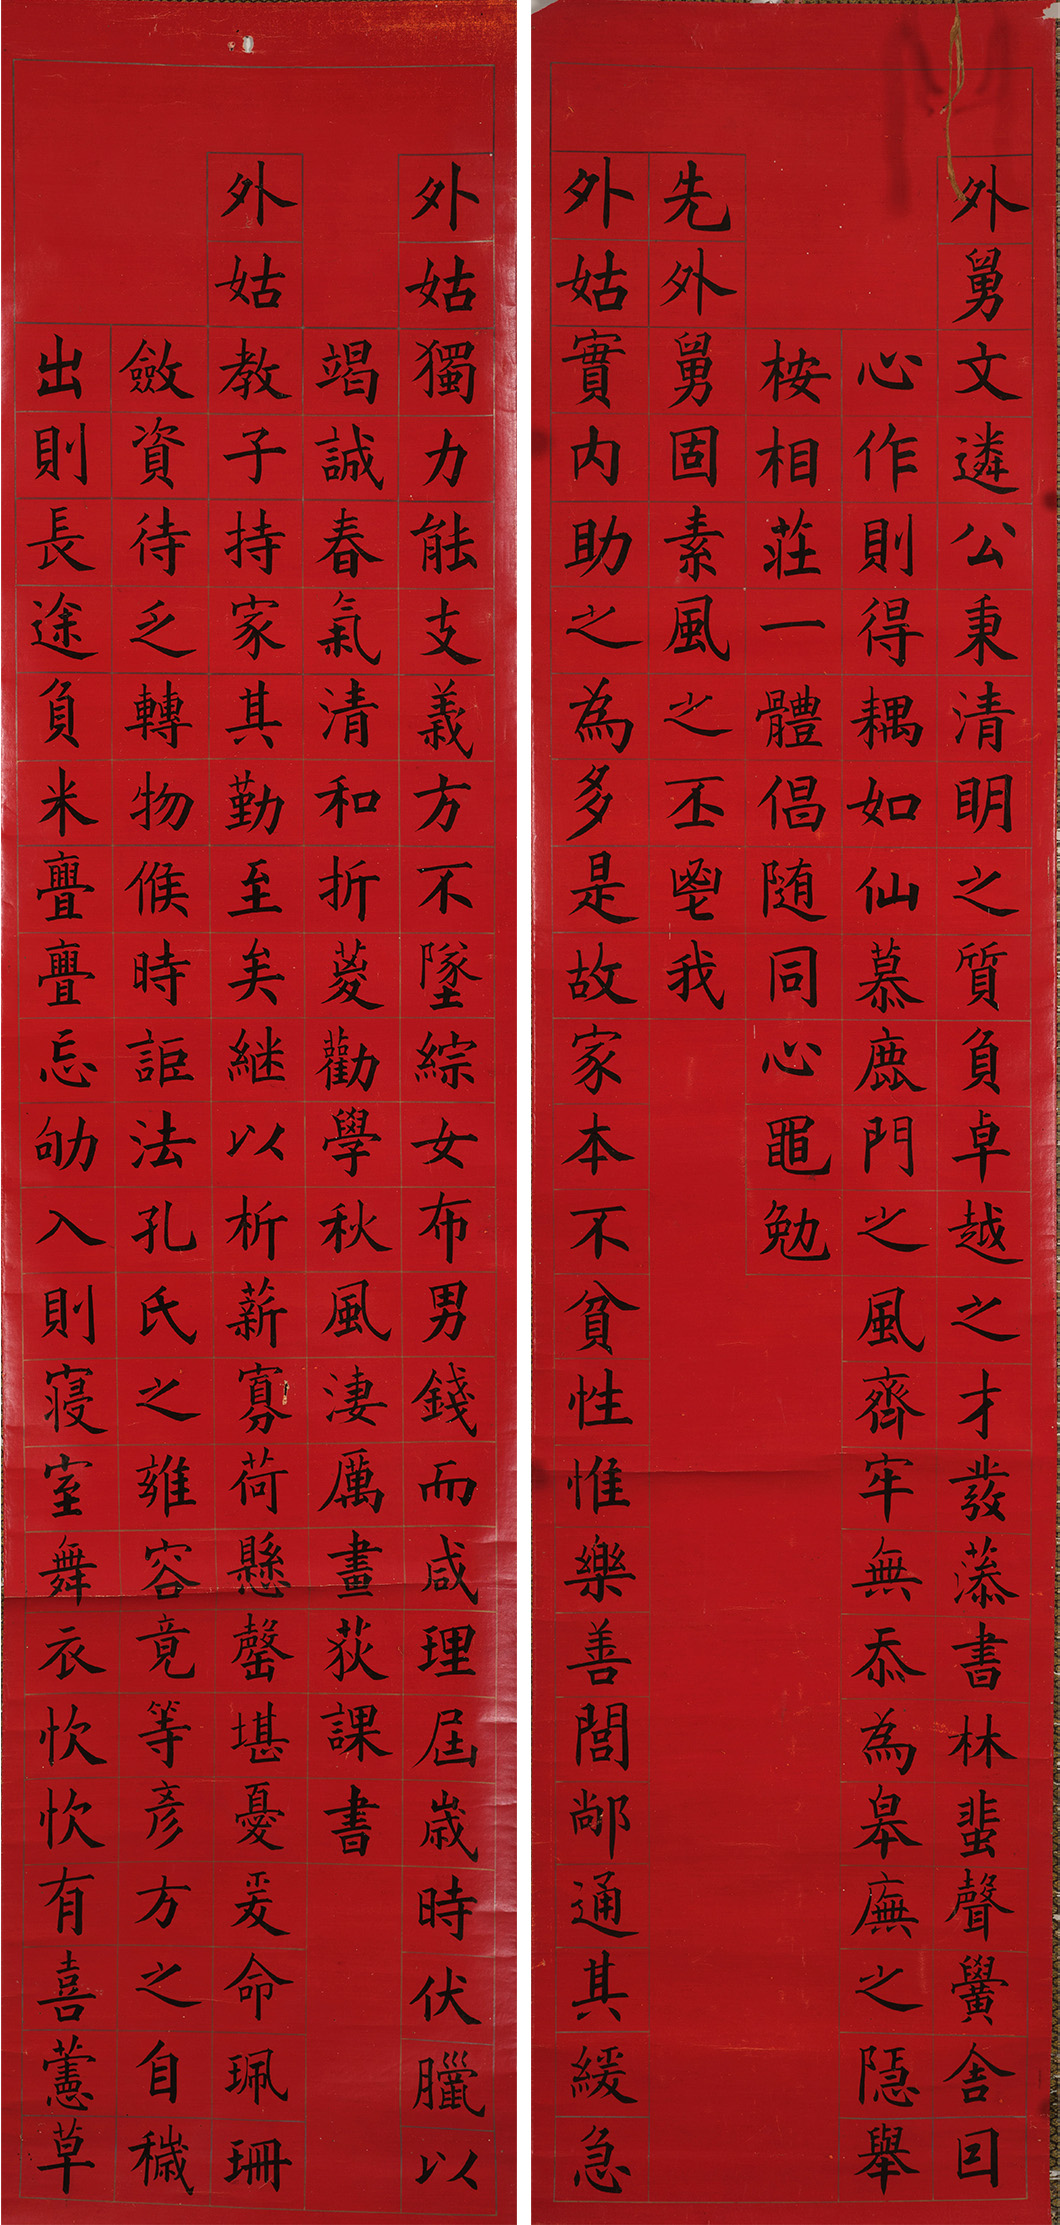 外舅文遴公秉清明之質負卓越之才發藻書林蜚聲黌舍因
心作則得耦如仙慕鹿門之風齊牢無忝為皋廡之隱舉
桉相莊一體倡随同心黽勉
先外舅固素風之丕鬯我
外姑實内助之為多是故家本不貧性惟樂善閭鄰通其緩急
外姑獨力能支義方不墜綜女布男錢而咸理屆歲時伏臘以
竭誠春氣清和折葼勸學秋風淒厲畫荻課書
外姑教子持家其勤至矣継以析薪寡荷懸罄堪憂爰命珮珊
斂資待乏轉物候時詎法孔氏之雍容竟等彥方之自穢
出則長途負米亹亹忘劬入則寢室舞衣忺忺有喜藼草